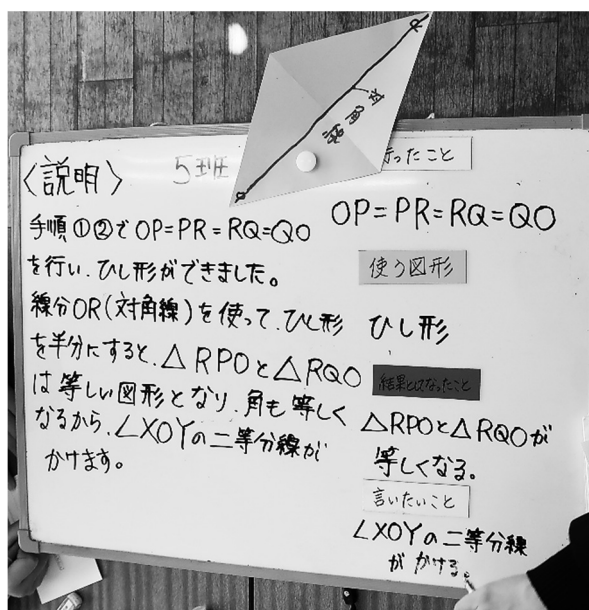 対角線
〈説明〉
5班
手順①②でOP=PR=RQ=QO
を行い、ひし形ができました。
線分OR(対角線)を使って、ひし形
を半分にすると、△RPOと△RQO
は等しい図形となり、角も等しく
なるから、∠XOYの二等分線が
かけます。
ったこと
OP=PR=RQ=QO
使う図形
ひし形
結果と
なったこと
△RPOと△RQOが
等しくなる。
言いたいこと
∠XOYの二等分線
がかける。